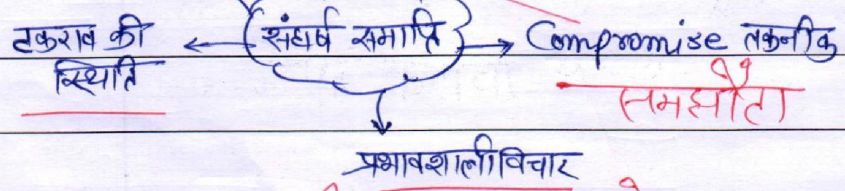 टकराव की ← संघर्ष समाप्ति → Compromise तकनीक
स्थिति
समझौता
प्रभावशाली विचार